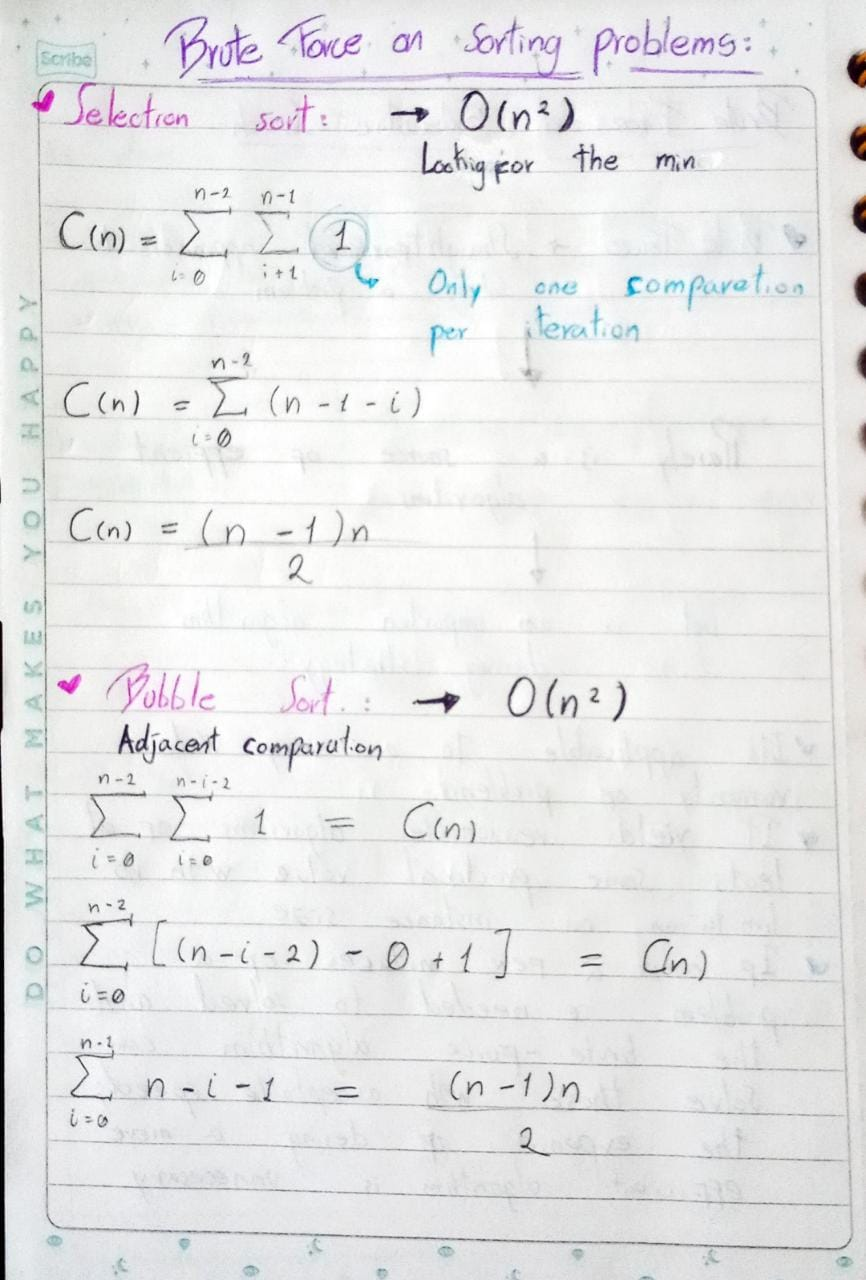 Scribe
Brute Force on Sorting problems:
Selection sort: → O(n²)
Looking for the min
C(n) = Σ_{i=0}^{n-2} Σ_{i+1}^{n-1} 1
Only one comparation
per iteration
C(n) = Σ_{i=0}^{n-2} (n - 1 - i)
C(n) = (n - 1)n / 2
Bubble Sort.: → O(n²)
Adjacent comparation
Σ_{i=0}^{n-2} Σ_{i=0}^{n-i-2} 1 = C(n)
Σ_{i=0}^{n-2} [(n-i-2) - 0 + 1] = C(n)
Σ_{i=0}^{n-1} n - i - 1 = (n - 1)n / 2
DO WHAT MAKES YOU HAPPY